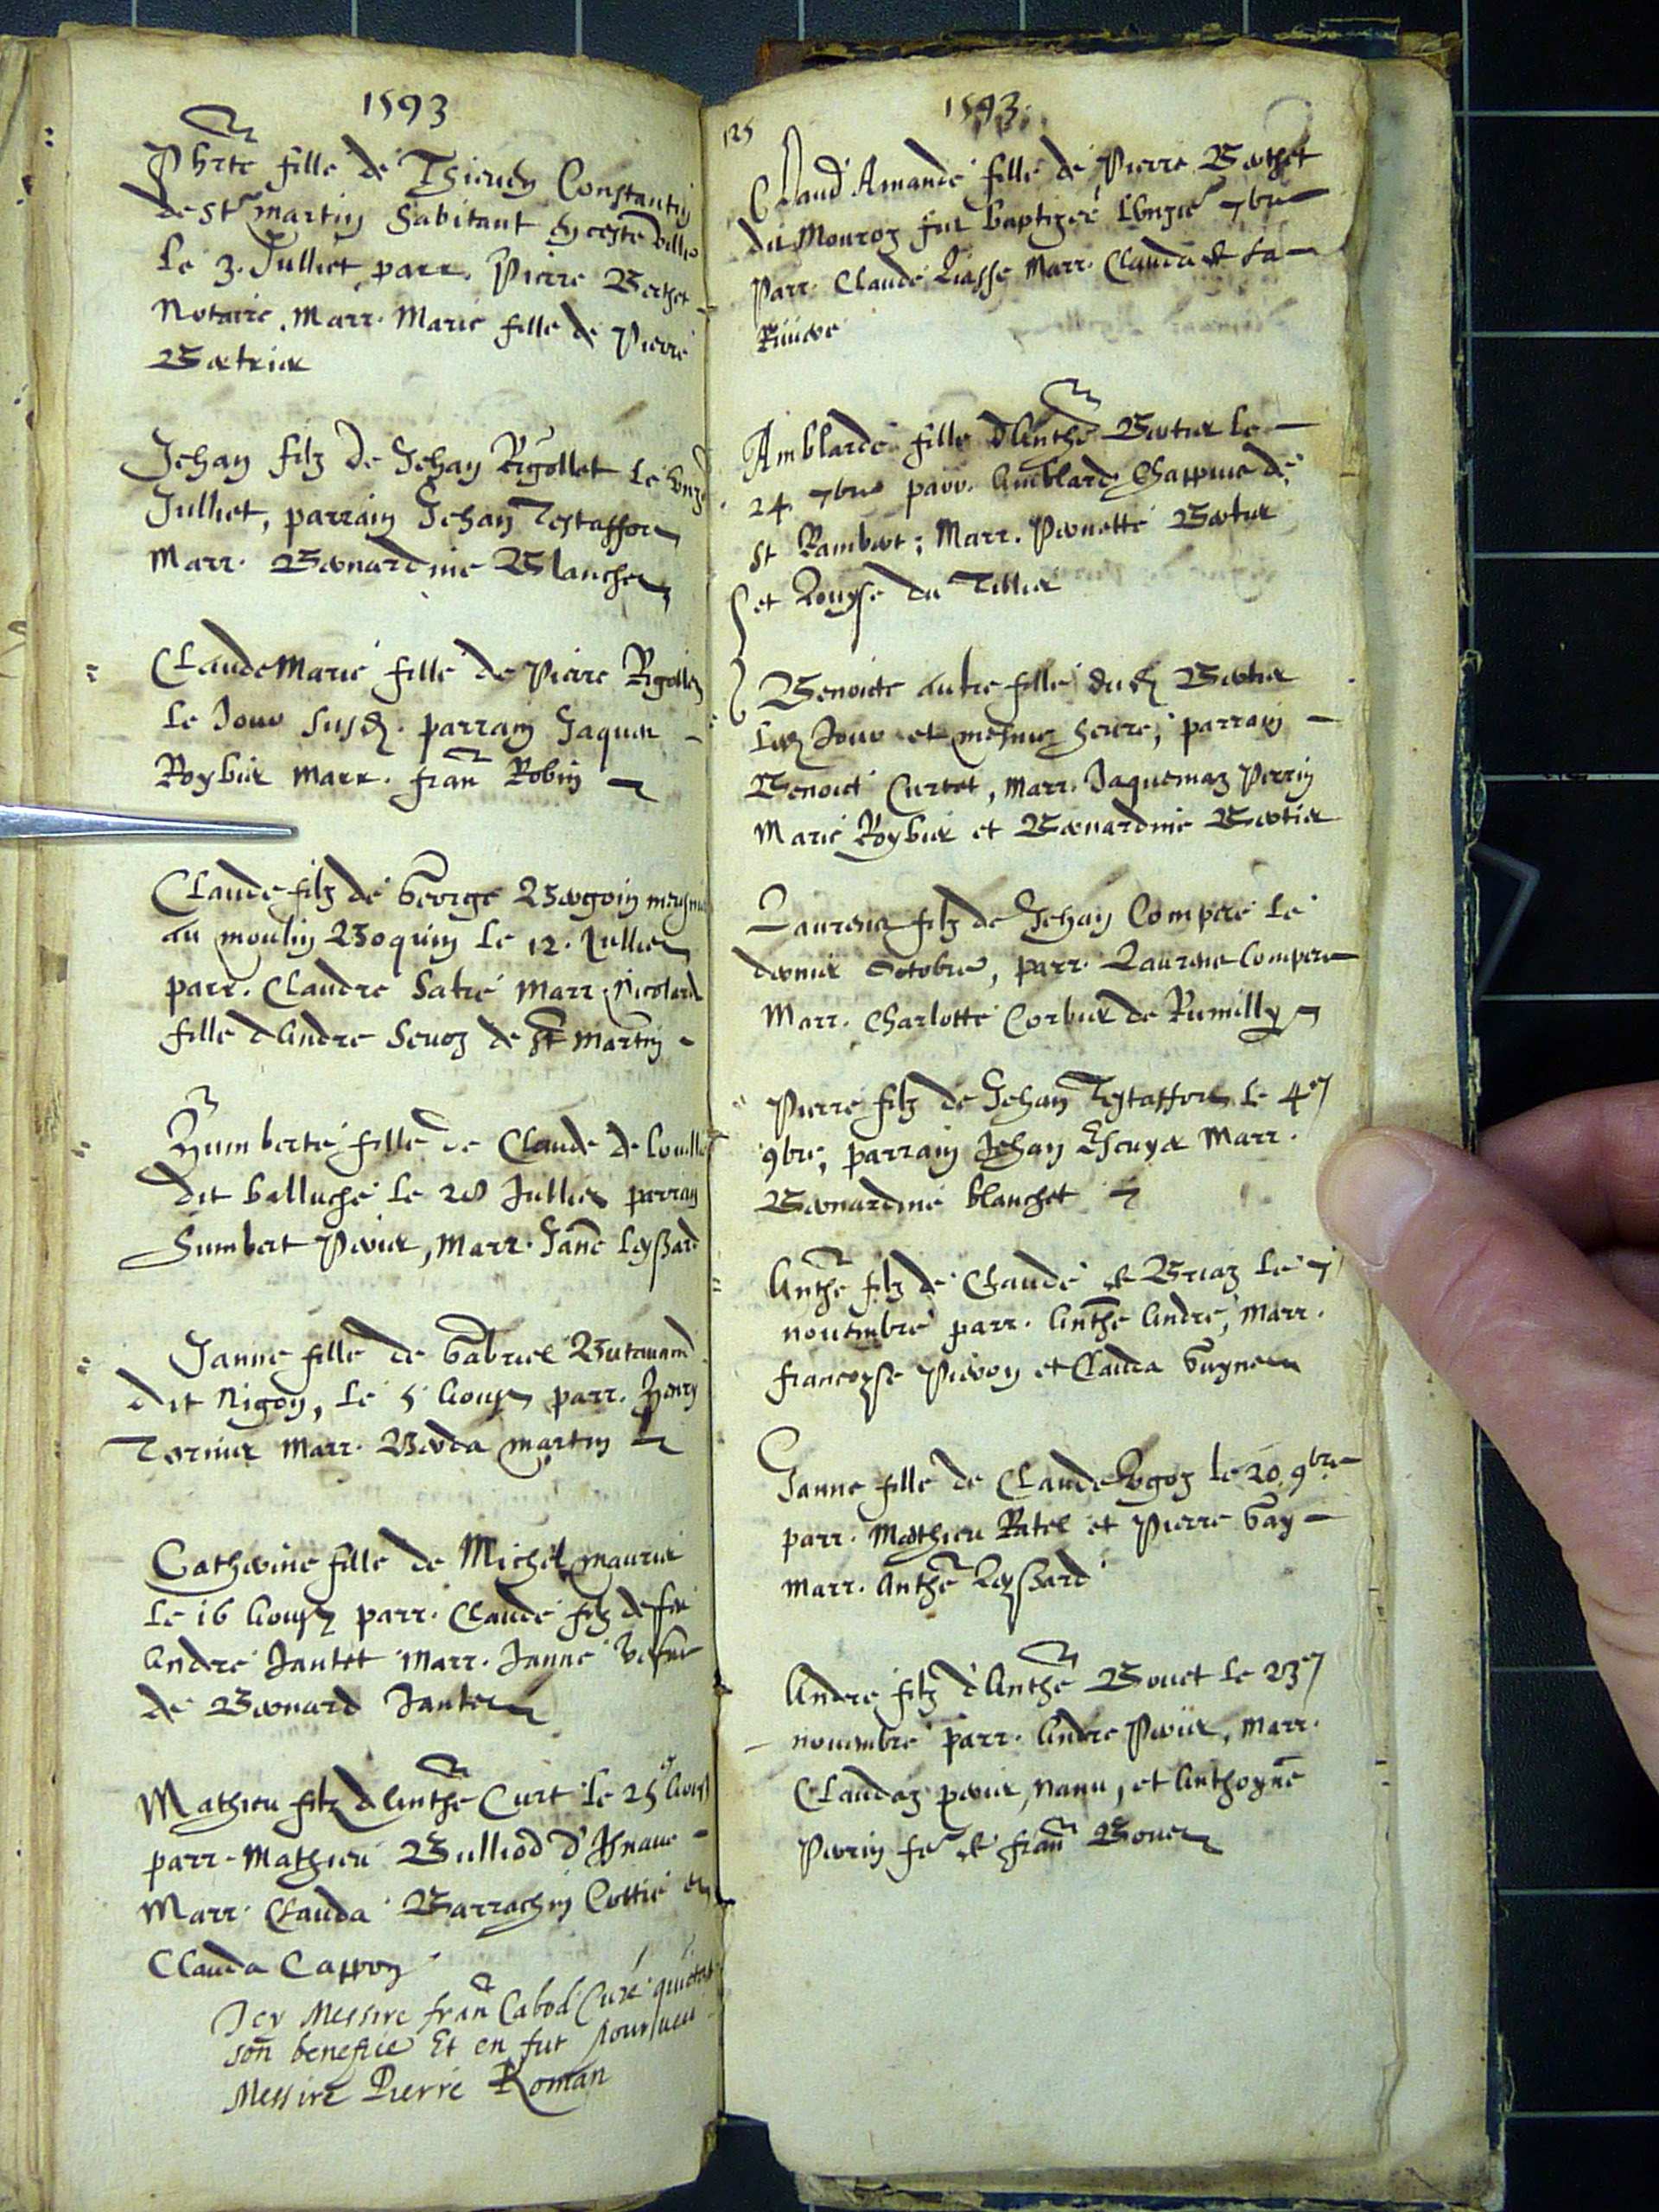 1593
Phrte fille de Thieuen Constantin
de st martin habitant en ceste ville
Le 3. Julliet parr. Pierre Berthet
Notaire, Marr. Marie fille de Pierre
Betrier
Jehan filz de Jehan Rigollet Le
Julliet, parrain Jehan Testaffort
Marr. Bernardine Blanchet
Claude Marie fille de Pierre Rigollet
Le Jour susd. parrain Jaques
Roybier Marr. fran Robin
Claude filz de George Bergoin
au moulin Boquin Le 12. Julliet
parr. Claudre Satre Marr. Nicolard
fille dAndre Seuoz de st Martin
Humberte fille de Claude de
dit balluche Le 28 Julliet parrain
Humbert Perier, Marr. Jane Leyssard
Janne fille de Gabriel Butauand
dit Nigon, Le 5 Aoust parr. Henry
Tornier Marr. Berda martin
Catherine fille de Michel maurier
Le 16 Aoust parr. Claude filz de feu
Andre Jantet Marr. Janne vefue
de Bernard Jantet
Mathieu filz dAnthe Curt Le 25 Aoust
parr. Mathieu Bulliod d'
Marr. Clauda Barrachin Cottie et
Clauda Cappon
Icy Messire fran Cabod Curé quicta
son benefice Et en fut pourueu
Messire Pierre Roman
125
1593.
Claud Amande fille de Pierre Berthet
dit Mouroz fut baptizee Lunzie 7bre
Parr. Claude Liasse Marr. Clauda de La
Riuiere
Amblarde fille dAnthe Bertier Le
24. 7bre parr. Amblard Chappuis de
st Rambert; Marr. Pernette Bertier
et Louyse du Tillier
Benoicte autre fille dud Bertier
Led Jour et mesme heure, parrain
Benoict Curtet, Marr. Jaquemaz Perrin
Marie Roybier et Bernardine Bertier
Laurens filz de Jehan Compere Le
dernier Octobre, parr. Laurens Compere
Marr. Charlotte Corbier de Rumilly
Pierre filz de Jehan Testaffort Le 4e
9bre, parrain Jehan Escuyer Marr.
Bernardine blanchet
Anthe filz de Claude de Briaz Le 7
nouembre parr. Anthe Andre, Marr.
francoyse Pieron et Clauda Guynet
Janne fille de Claude Rogoz le 20. 9bre
parr. Mathieu Ratel et Pierre Gay
Marr. Anthe Leyssard
Andre filz d'Anthe Bouet Le 23e
nouembre parr. Andre Perier, Marr.
Claudaz perier, nanu, et Anthoyne
Perrin fe de fran Bouet